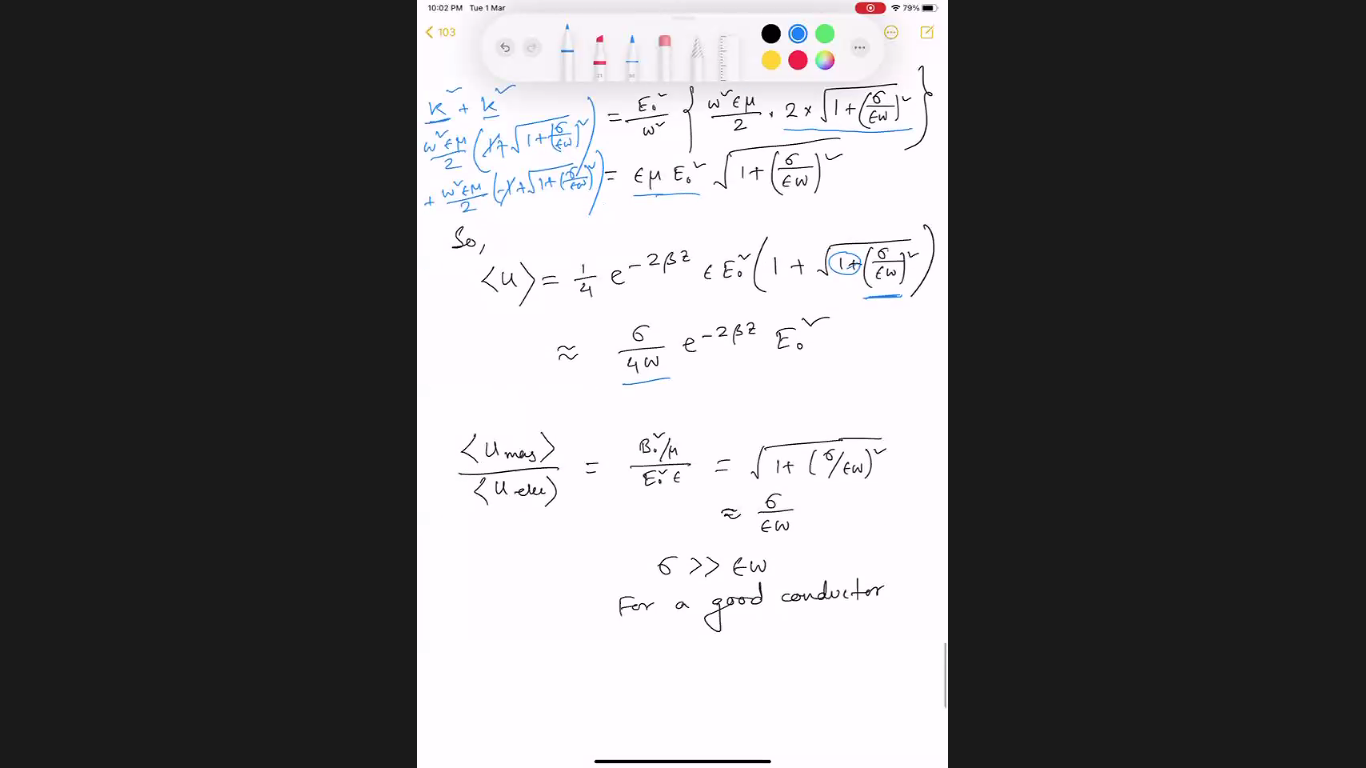 10:02 PM Tue 1 Mar
79%
103
k² + k²
ω²ϵμ/2 (1+√(1+(σ/ϵω)²))
+ ω²ϵμ/2 (-1+√(1+(σ/ϵω)²))
= E₀²/ω² { ω²ϵμ/2 · 2 × √(1+(σ/ϵω)²) }
= ϵμ E₀² √(1+(σ/ϵω)²)
So,
⟨u⟩ = 1/4 e^(-2βz) ϵ E₀² (1 + √(1+(σ/ϵω)²))
≈ σ/4ω e^(-2βz) E₀²
⟨u mag⟩/⟨u elec⟩ = (B₀²/μ)/(E₀² ϵ) = √(1+(σ/ϵω)²)
≈ σ/ϵω
σ >> ϵω
For a good conductor